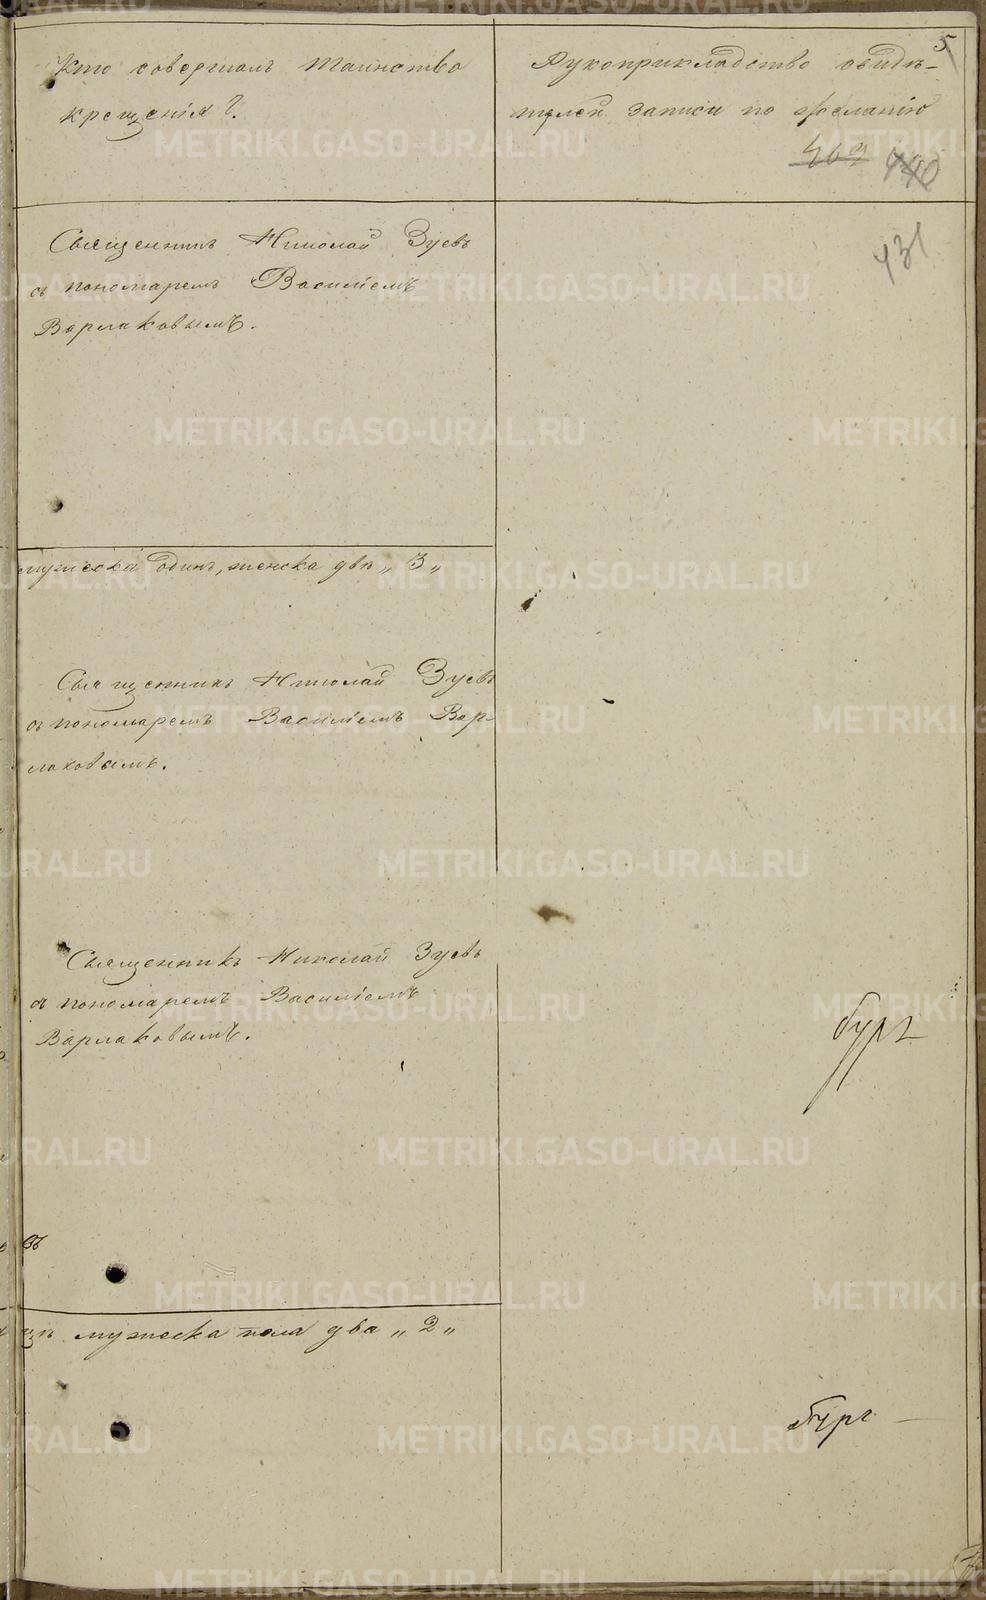 5
Кто совершалъ таинство
крещенія?.
Рукоприкладство свидѣ-
телей записи по желанію
469 440
431
Священникъ Николай Зуевъ
съ пономаремъ Василіемъ
Варлаковымъ.
мужеска одинъ, женска двѣ „3„
Священникъ Николай Зуевъ
съ пономаремъ Василіемъ Вар-
лаковымъ.
Священникъ Николай Зуевъ
съ пономаремъ Василіемъ
Варлаковымъ.
бург
въ
мужеска пола два „2„
бург
METRIKI.GASO-URAL.RU